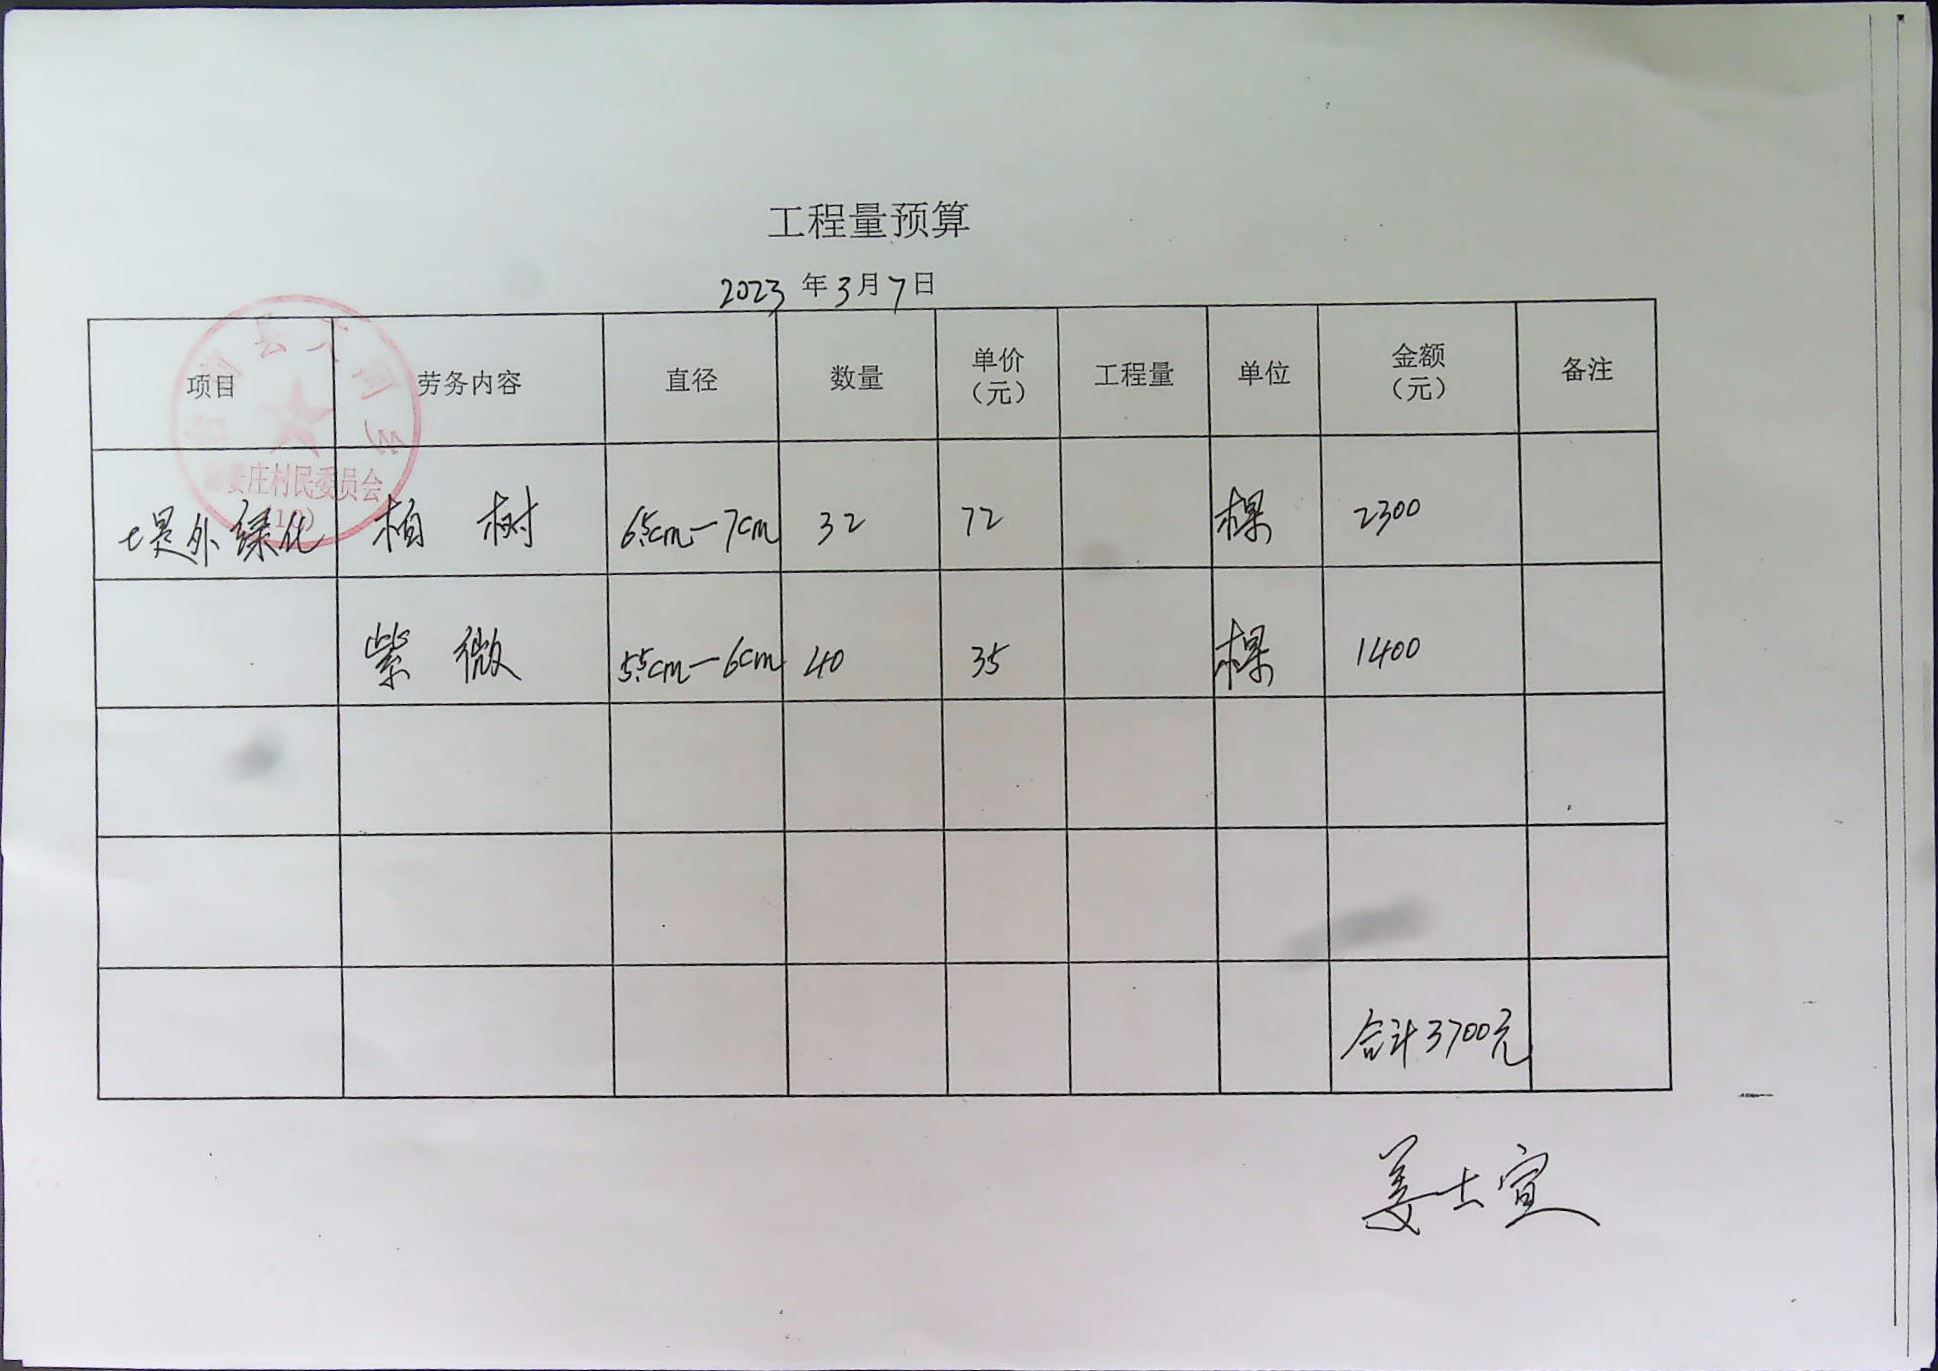 工程量预算
2023 年 3 月 7 日
项目 劳务内容 直径 数量 单价（元） 工程量 单位 金额（元） 备注
庄村民委员会
堤外绿化 柏树 6.5cm—7cm 32 72 棵 2300
紫微 5.5cm—6cm 40 35 棵 1400
合计3700元
姜士宣